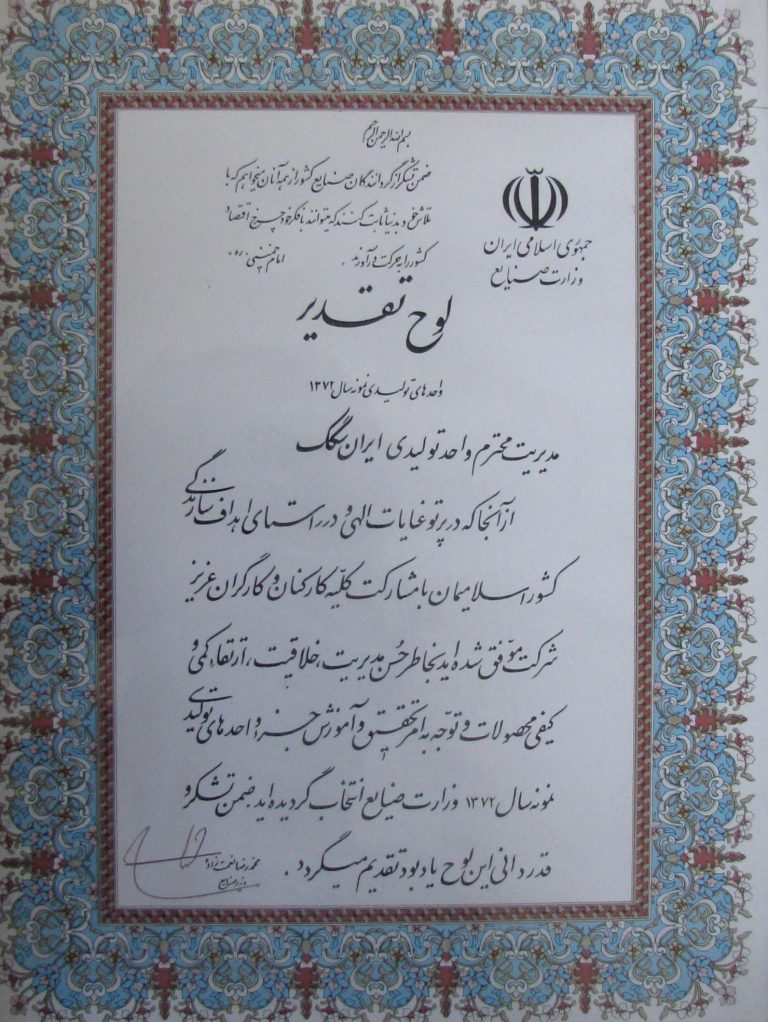 بسم الله الرحمن الرحیم
ضمن تشکر از گردانندگان صنایع کشور از همه آنان میخواهم که با
تلاش خود بدنیا ثابت کنند که میتوانند با فکر خود چرخ اقتصاد
کشور را به حرکت درآورند . امام خمینی «ره»
جمهوری اسلامی ایران
وزارت صنایع
لوح تقدیر
واحدهای تولیدی نمونه سال ۱۳۷۲
مدیریت محترم واحد تولیدی ایران سگک
از آنجا که در پرتو عنایات الهی و در راستای اهداف سازندگی
کشور اسلامیمان با مشارکت کلیّه کارکنان و کارگران عزیز
شرکت موّفق شده اید بخاطر حُسن مدیریت ، خلاقیت ، ارتقاء کمی و
کیفی محصولات و توجّه به امر تحقیق و آموزش جزء واحدهای تولیدی
نمونه سال ۱۳۷۲ وزارت صنایع انتخاب گردیده اید ضمن تشکر و
قدردانی این لوح یادبود تقدیم میگردد .
محمدرضا نعمت زاده
وزیر صنایع